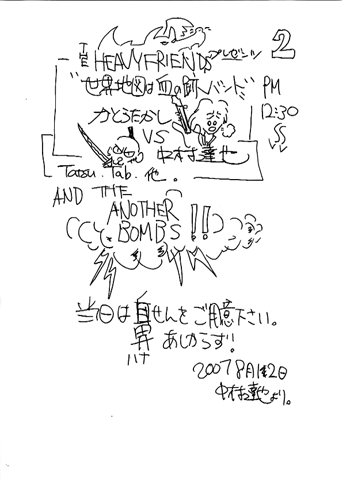 THE HEAVYFRIENDS プレゼンツ 2
"世界地図は血の跡バンド" PM
かとうたかし 12:30
VS
中村達也
Tatsu. Tab. 他.
AND THE
ANOTHER
BOMBS!!
当日は鼻せんをご用意下さい。
ハナ あしからず!
2007 8月12日
中村達也より。